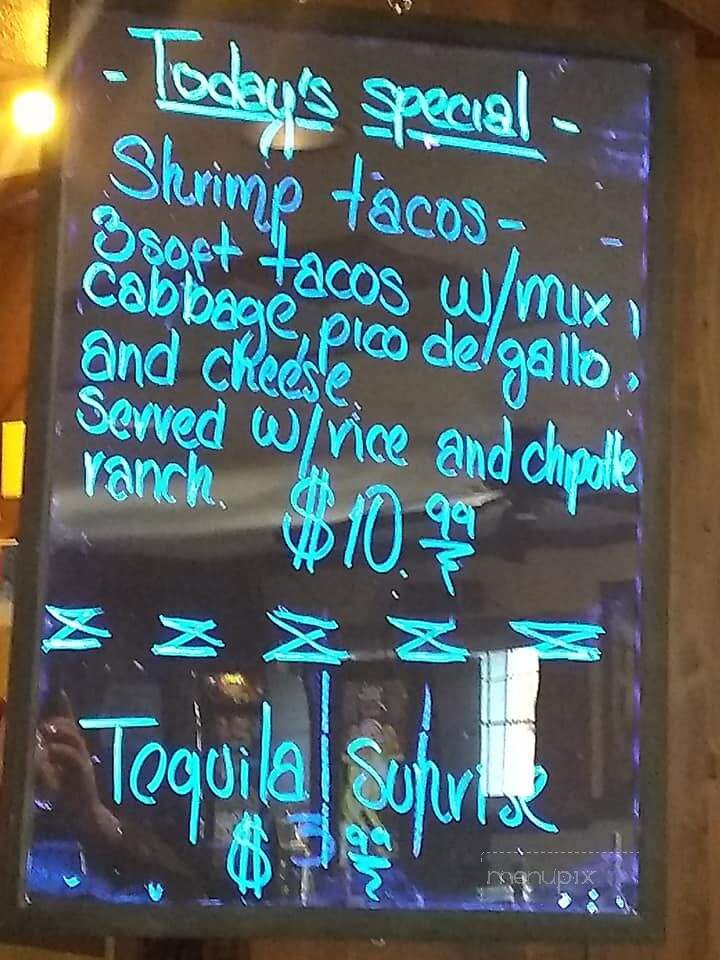 - Today's special -
Shrimp tacos -
3 soft tacos w/mix
cabbage, pico de gallo,
and cheese.
Served w/rice and chipotle
ranch.
$10.99
Tequila Sunrise
$ 99
menupix